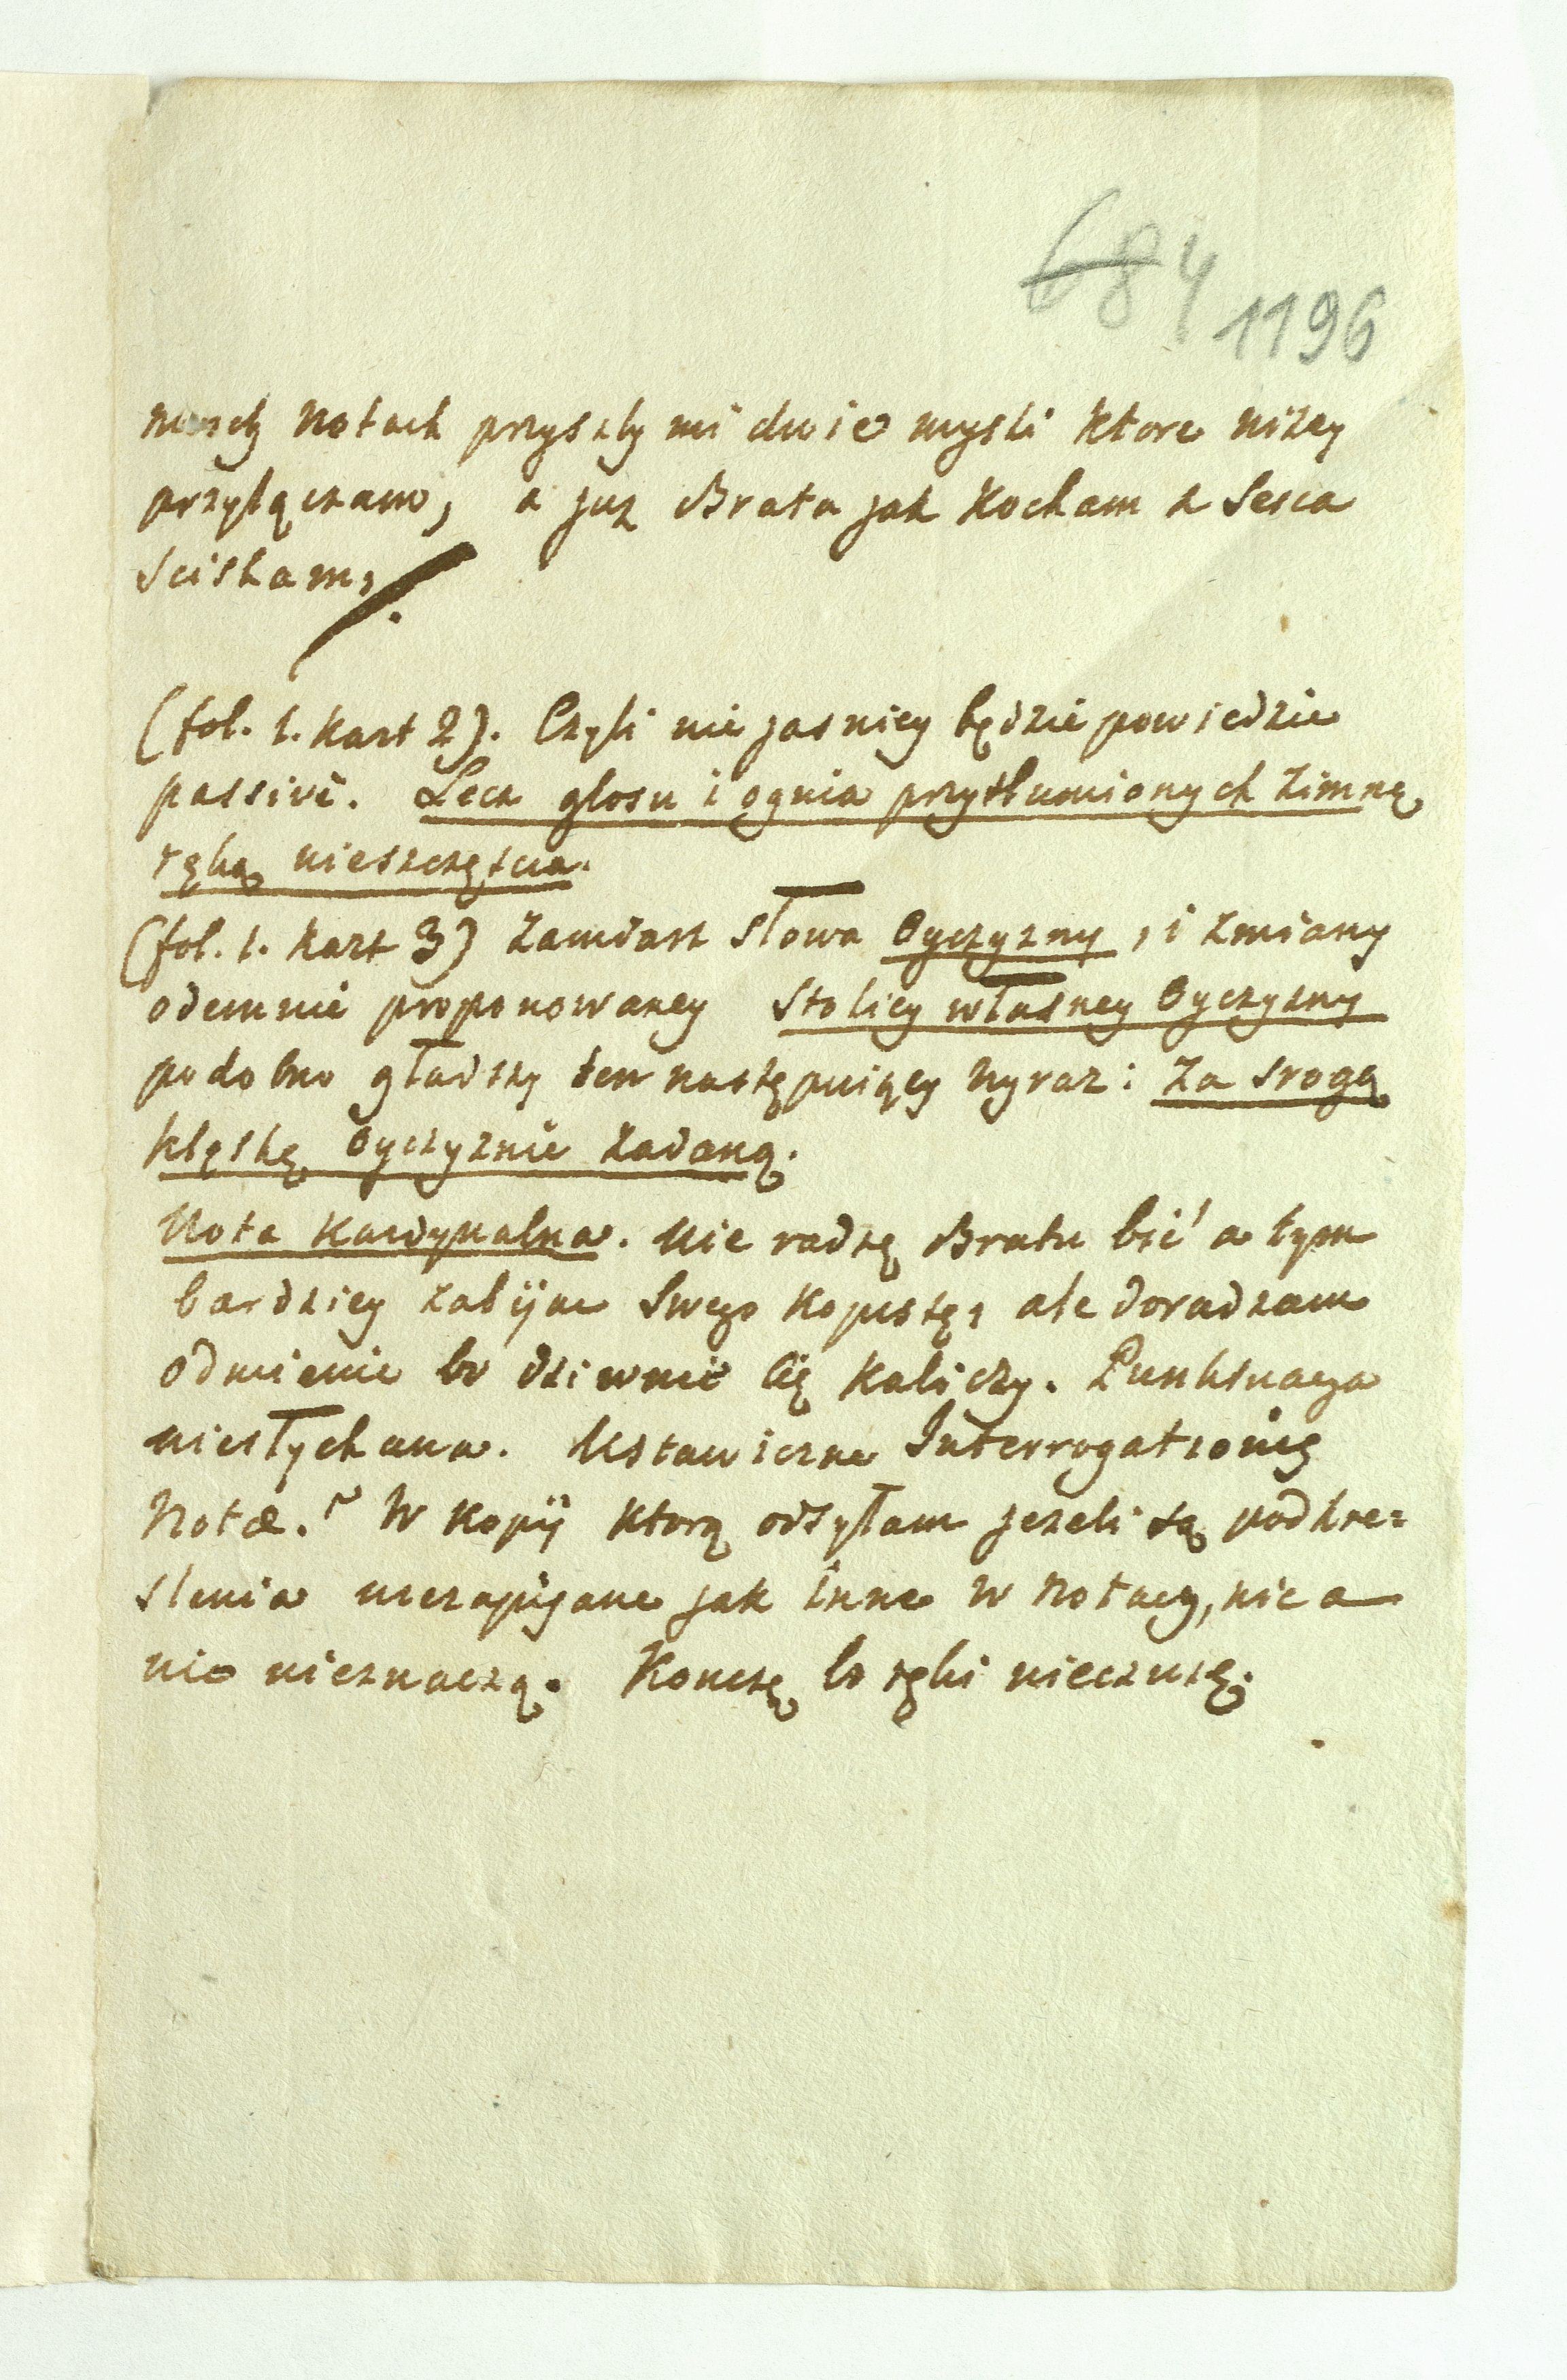 684
1196
moich Notach przyszły mi dwie mysli ktore niżey
przyłączam, a juz Brata jak Kocham z Serca
Sciskam,
(fol. 1. Kart 2). Czyli nie jasniey będzie powiedzie
passivè. Lecz głosu i ognia przytłumionych zimną
ręką nieszczęscia.
(fol. 1. Kart 3) zamiast Słowa Oyczyzny, i zmiany
odemnie proponowaney Stolicy własney Oyczyzny
podobno gładszy ten następuiący wyraz: za srogą
klęskę Oyczyznie zadaną.
Nota Kardynalna. Nie radzę Bratu bić a tym
bardziey zabijac Swego Kopistę, ale doradzam
odmienic bo dziwnie Cię Kaliczy. Punktuacya
niesłychana. Ustawiczne Interrogationis
Notæ. ? W Kopij ktorą odsyłam jezeli są podkre=
slenia niezapisane jak inne w Notacy, nic a
nic nieznaczą. Konczę bo ręki nieczuię.